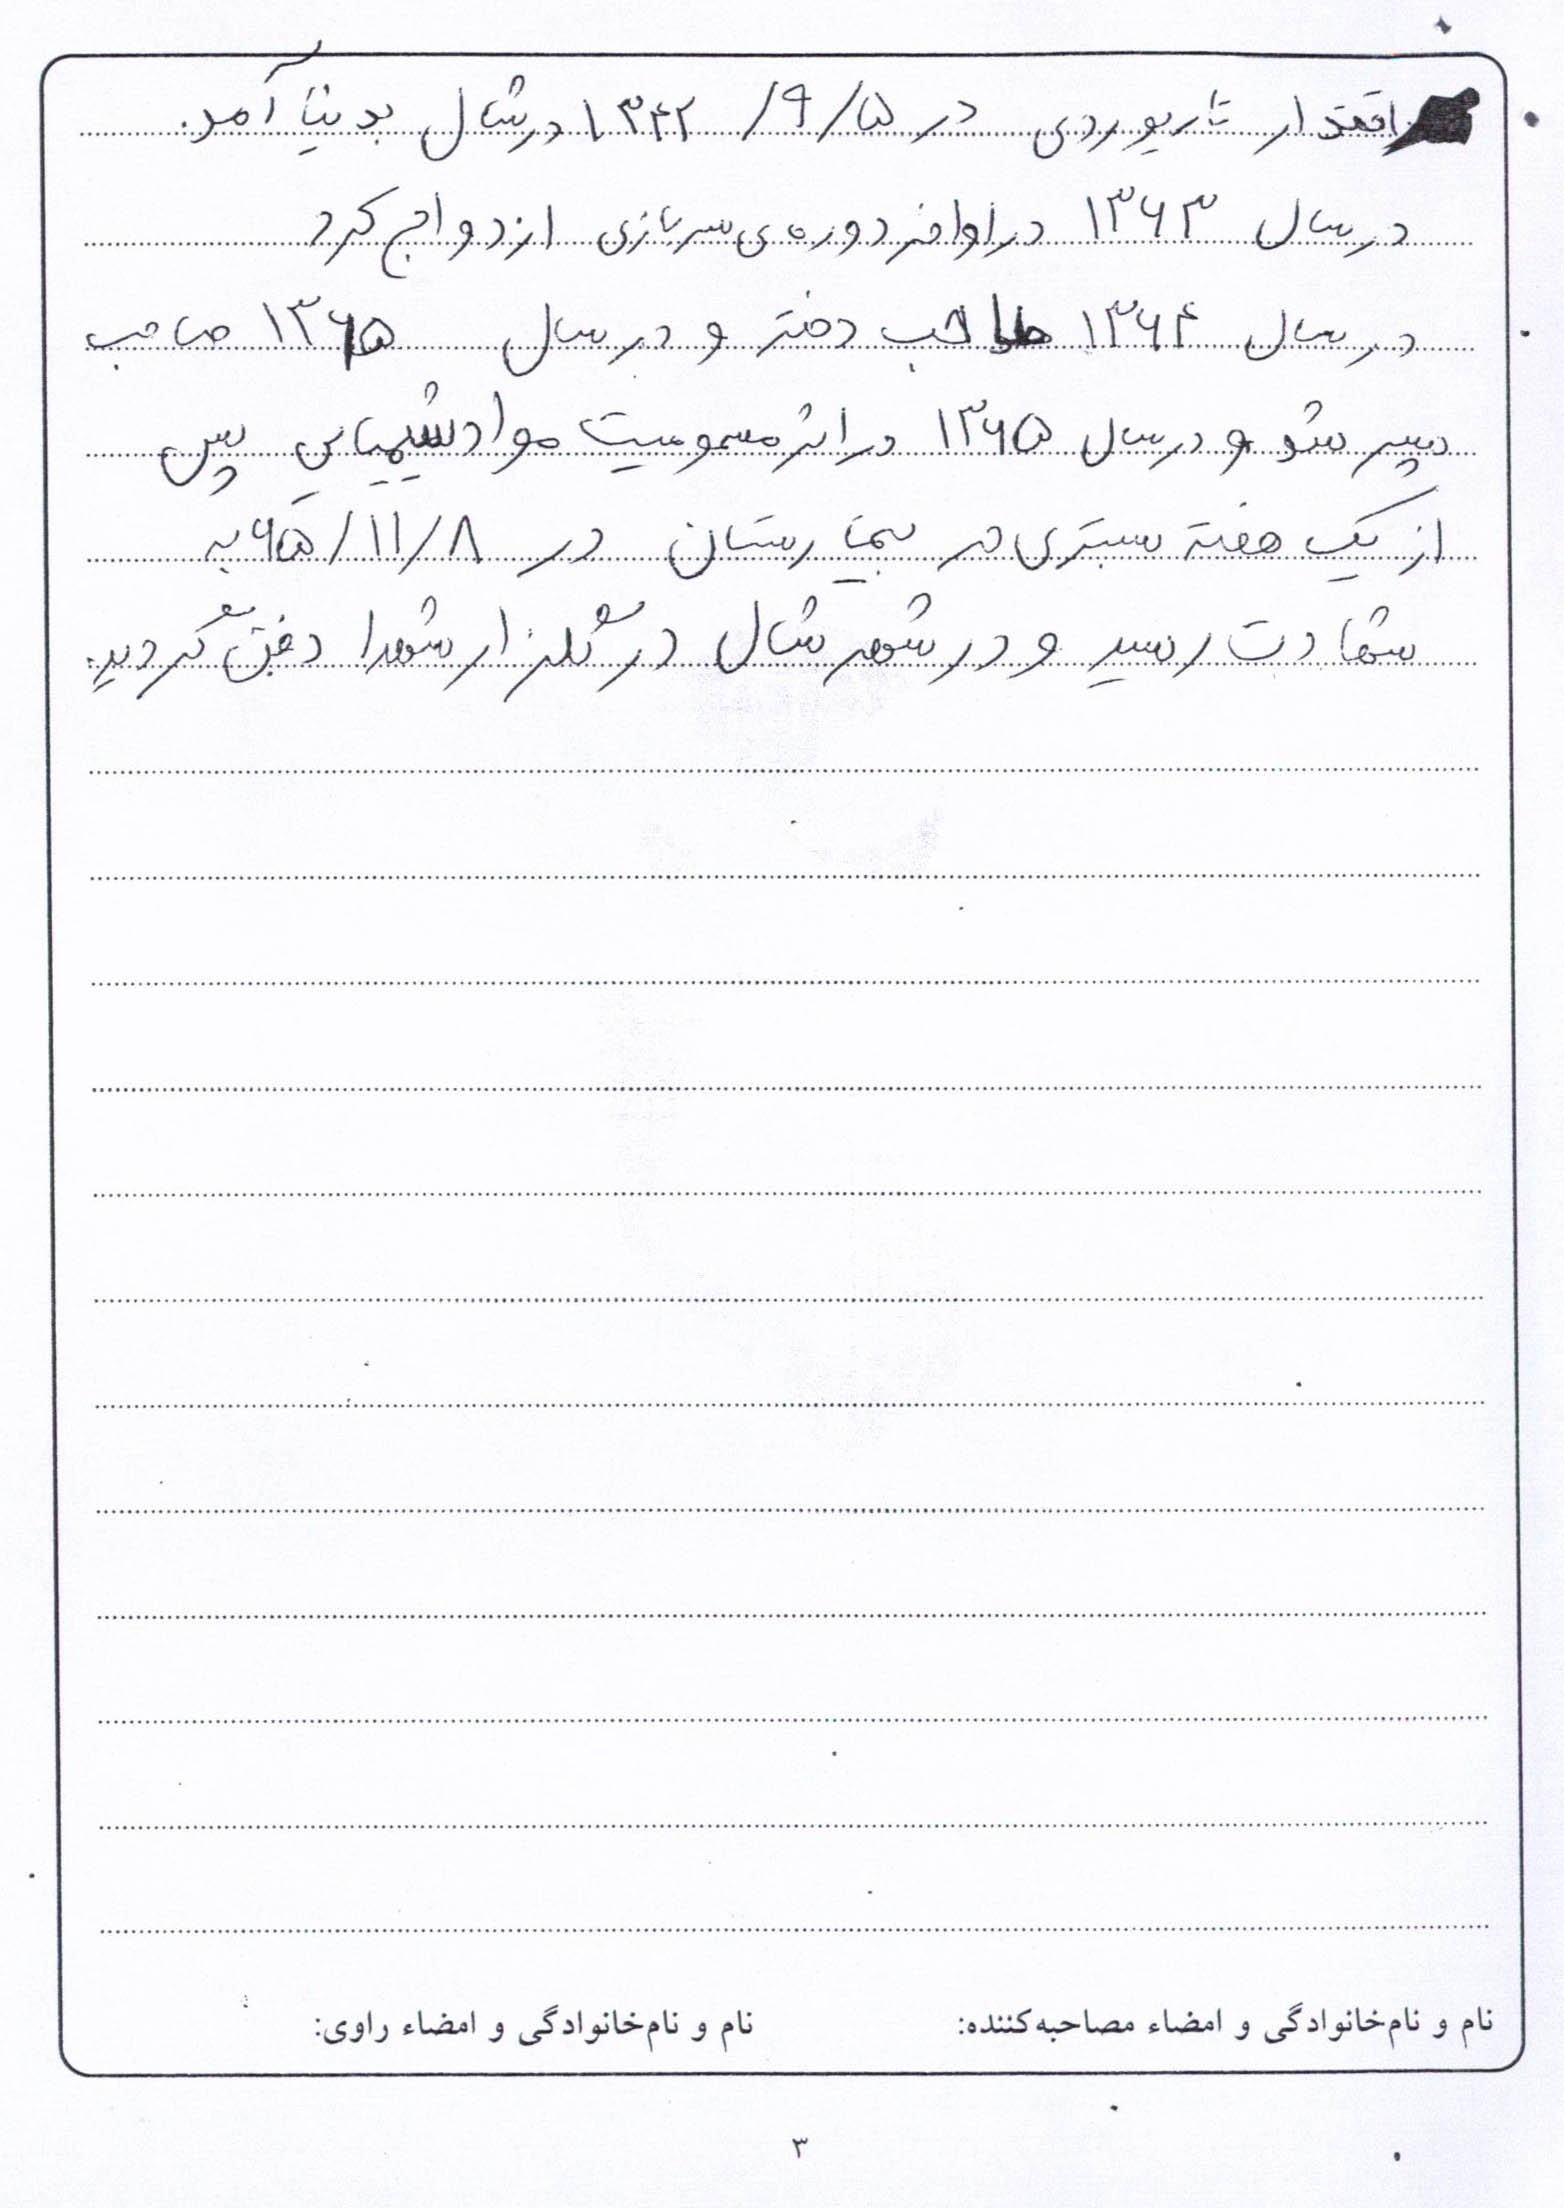 اقتدار تاریوردی در ۵/۹/۱۳۴۲ در شال بدنیا آمد.
در سال ۱۳۶۳ در اواخر دوره‌ی سربازی ازدواج کرد
در سال ۱۳۶۴ صاحب دختر و در سال ۱۳۶۵ صاحب
پسر شد و در سال ۱۳۶۵ در اثر مسمومیت مواد شیمیایی پس
از یک هفته بستری در بیمارستان در ۸/۱۱/۶۵ به
شهادت رسید و در شهر شال در گلزار شهدا دفن گردید.
نام و نام‌خانوادگی و امضاء مصاحبه‌کننده: نام و نام‌خانوادگی و امضاء راوی:
۳